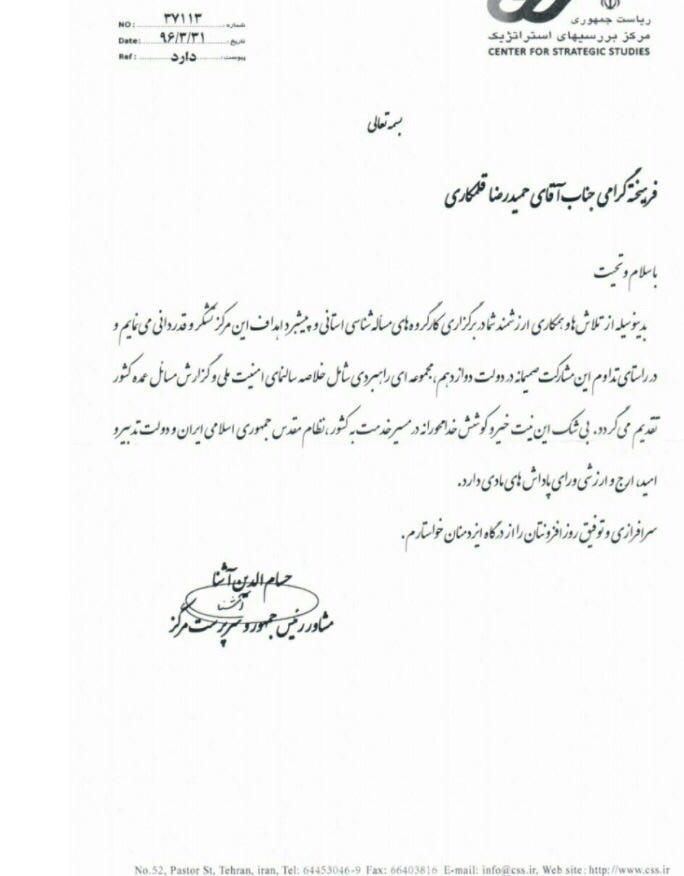 ریاست جمهوری
مرکز بررسیهای استراتژیک
CENTER FOR STRATEGIC STUDIES
NO: ۳۷۱۱۳ شماره:
Date: ۹۶/۳/۳۱ تاریخ:
Ref: دارد پیوست:
بسمه تعالی
فرهیخته گرامی جناب آقای حمیدرضا قلمکاری
با سلام و تحیت
بدینوسیله از تلاش ها و همکاری ارزشمند شما در برگزاری کارگروه های مساله شناسی استانی و پیشبرد اهداف این مرکز تشکر و قدردانی می نمایم و
در راستای تداوم این مشارکت صمیمانه در دولت دوازدهم، مجموعه ای راهبردی شامل خلاصه سالنمای امنیت ملی و گزارش مسائل عمده کشور
تقدیم می گردد. بی شک این نیت خیر و کوشش خدامحورانه در مسیر خدمت به کشور، نظام مقدس جمهوری اسلامی ایران و دولت تدبیر و
امید، ارج و ارزشی ورای پاداش های مادی دارد.
سرافرازی و توفیق روزافزونتان را از درگاه ایزد منان خواستارم.
حسام الدین آشنا
آشنا
مشاور رئیس جمهور و سرپرست مرکز
No.52, Pastor St, Tehran, iran, Tel: 64453046-9 Fax: 66403816 E-mail: info@css.ir, Web site: http://www.css.ir